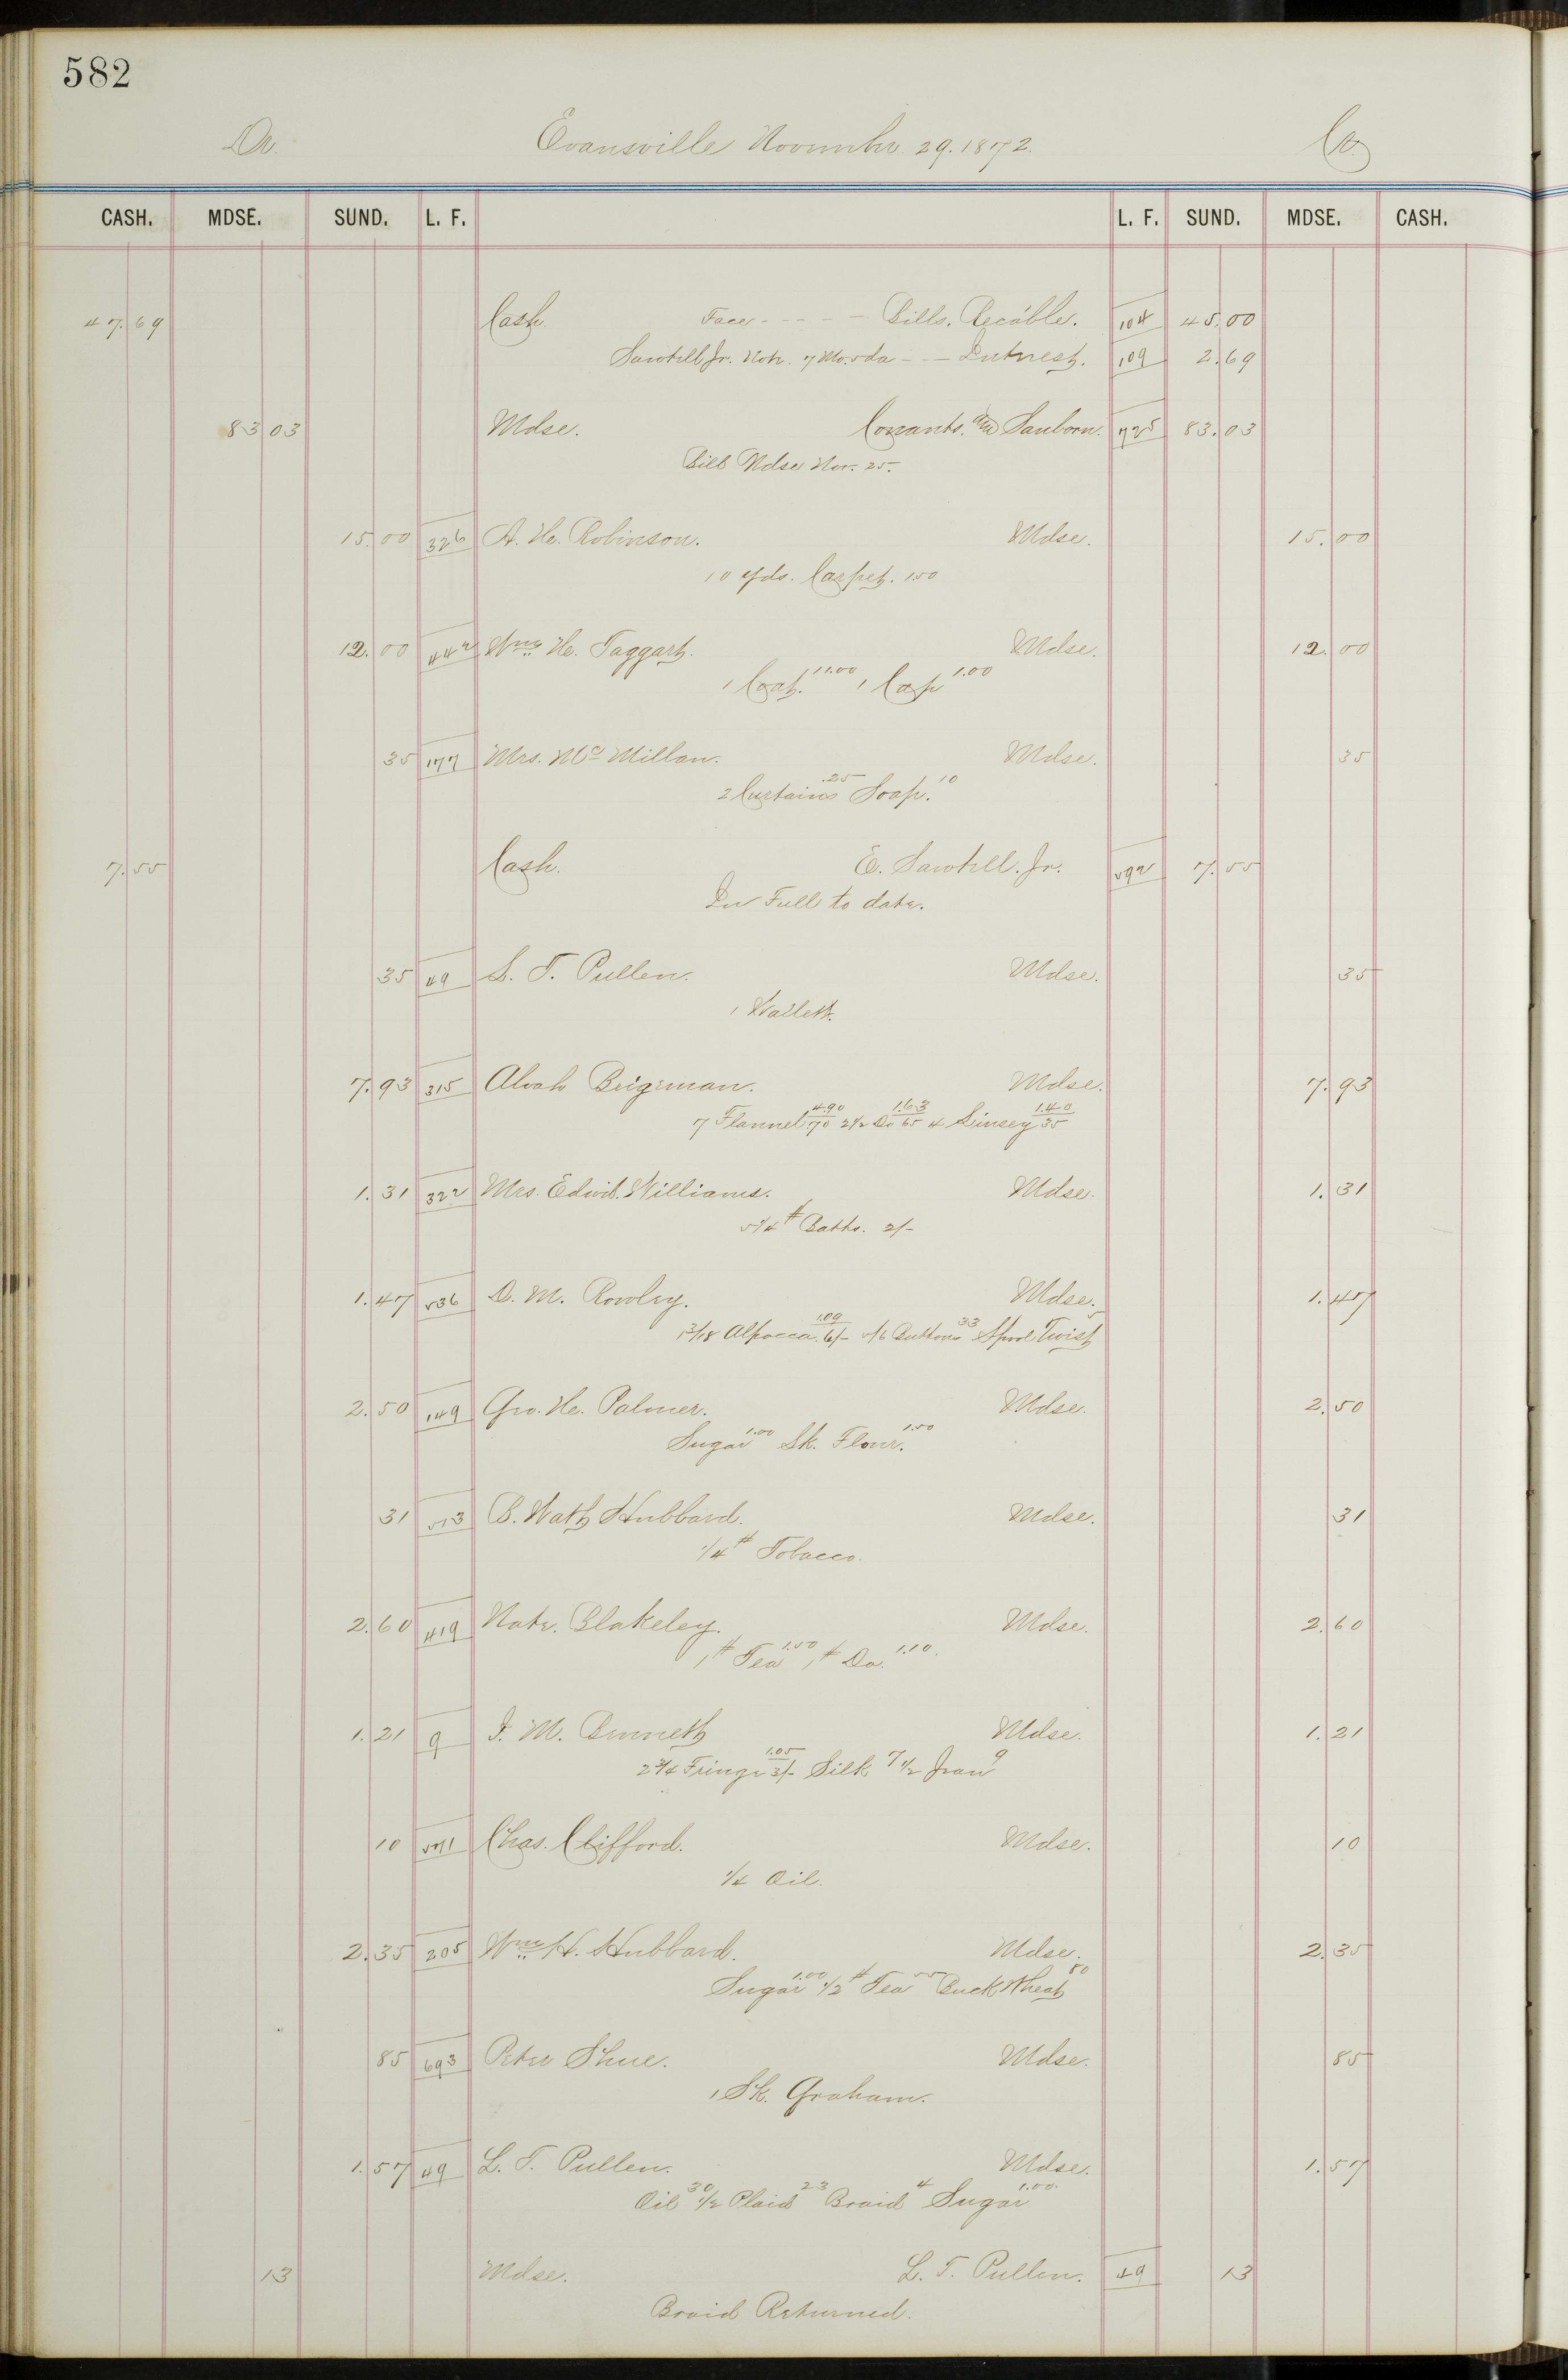 582
Dr. Evansville November. 29. 1872. Cr.
CASH. MDSE. SUND. L. F. L. F. SUND. MDSE. CASH.
47.69 Cash. Face - - - - - Bills. Recable. 104 45.00
Sawtell Jr. Note. 7 Mo. 5 da - - - Interest. 109 2.69
83 03 Mdse. Conants. and Sanborn. 725 83.03
Bill Mdse Nov. 25.
15.00 326 A. H. Robinson. Mdse. 15.00
10 yds. Carpet. 1.50
12.00 442 Wm. H. Taggart. Mdse. 12.00
1 Coat. 11.00 1 Cap 1.00
35 177 Mrs. Mc Millan. Mdse. 35
2 Curtains .25 Soap. 10
7.55 Cash. E. Sawtell. Jr. 592 7.55
In Full to date.
35 49 L. T. Pullen. Mdse. 35
1 Wallett.
7.93 315 Alvah Mdse. 7.93
7 Flannel 4.90/.70 2 1/2 Do 1.63/65 4 Linsey 1.40/35
1.31 322 Mrs. Edwd. Williams. Mdse. 1.31
5 1/4 # Batts. 2/-
1.47 536 D. M. Rowley. Mdse. 1.47
Alpacca 1.09/6/- 5/6 Buttons 33 Spool Twist 5
2.50 149 Geo. H. Palmer. Mdse. 2.50
Sugar 1.00 Sk. Flour. 1.50
31 513 B. Hubbard. Mdse. 31
1/4 # Tobacco.
2.60 419 Nate. Blakeley. Mdse. 2.60
1 # Tea 1.50 1 # Do. 1.10.
1.21 9 I. M. Bennett Mdse. 1.21
2 3/4 Fringe 1.05/3/- Silk 7 1/2 Jean 9
10 571 Chas. Clifford. Mdse. 10
1/4 Oil.
2.35 205 Wm. H. Hubbard. Mdse. 2.35
Sugar 1.00 1/2 # Tea 55 Buck Wheat 80
85 693 Peter Shue. Mdse. 85
1 Sk. Graham.
1.57 49 L. T. Pullen. Mdse. 1.57
Oil 30 1/2 Plaid 23 Braid 4 Sugar 1.00.
13 Mdse. L. T. Pullen. 49 13
Braid Returned.